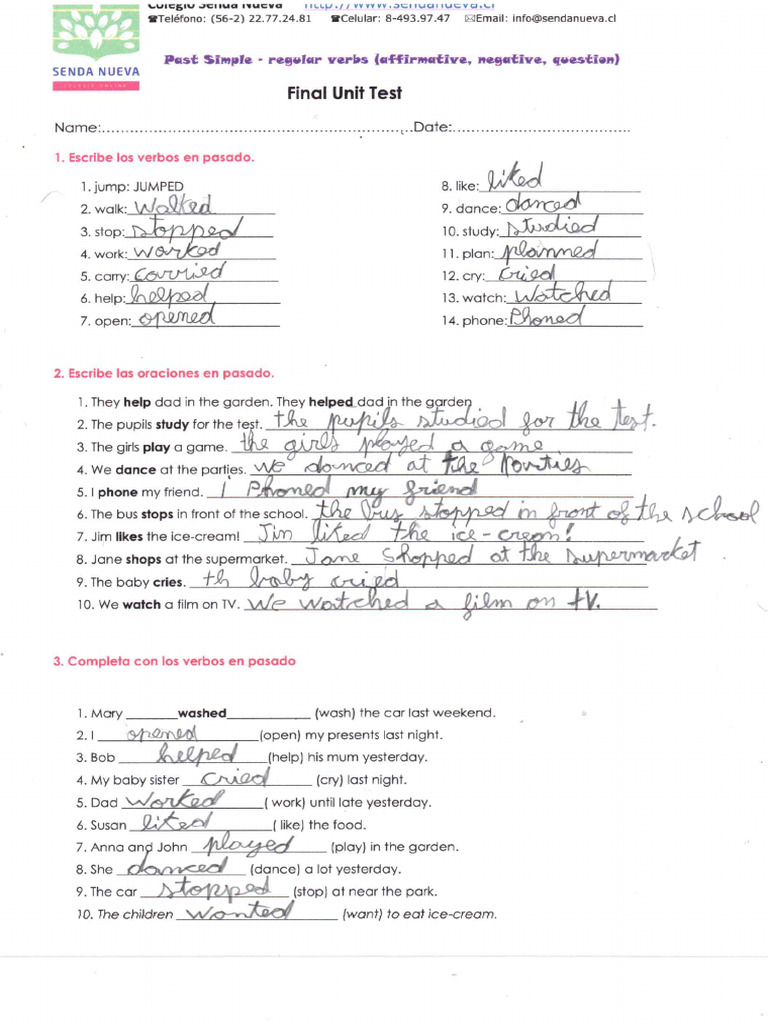 Colegio Senda Nueva http://www.sendanueva.cl
☎Teléfono: (56-2) 22.77.24.81 ☎Celular: 8-493.97.47 ✉Email: info@sendanueva.cl
SENDA NUEVA
COLEGIO ONLINE
Past Simple - regular verbs (affirmative, negative, question)
Final Unit Test
Name:..............................................................Date:...................................
1. Escribe los verbos en pasado.
1. jump: JUMPED
2. walk: Walked
3. stop: stopped
4. work: worked
5. carry: carried
6. help: helped
7. open: opened
8. like: liked
9. dance: danced
10. study: studied
11. plan: planned
12. cry: cried
13. watch: Watched
14. phone: Phoned
2. Escribe las oraciones en pasado.
1. They help dad in the garden. They helped dad in the garden
2. The pupils study for the test. the pupils studied for the test.
3. The girls play a game. the girls played a game
4. We dance at the parties. we danced at the Parties
5. I phone my friend. i Phoned my friend
6. The bus stops in front of the school. the bus stopped in front of the school
7. Jim likes the ice-cream! Jim liked the ice-cream!
8. Jane shops at the supermarket. Jane shopped at the supermarket
9. The baby cries. th baby cried
10. We watch a film on TV. We watched a film on tV.
3. Completa con los verbos en pasado
1. Mary ______washed__________ (wash) the car last weekend.
2. I opened (open) my presents last night.
3. Bob helped (help) his mum yesterday.
4. My baby sister cried (cry) last night.
5. Dad Worked ( work) until late yesterday.
6. Susan liked ( like) the food.
7. Anna and John played (play) in the garden.
8. She danced (dance) a lot yesterday.
9. The car stopped (stop) at near the park.
10. The children Wanted (want) to eat ice-cream.